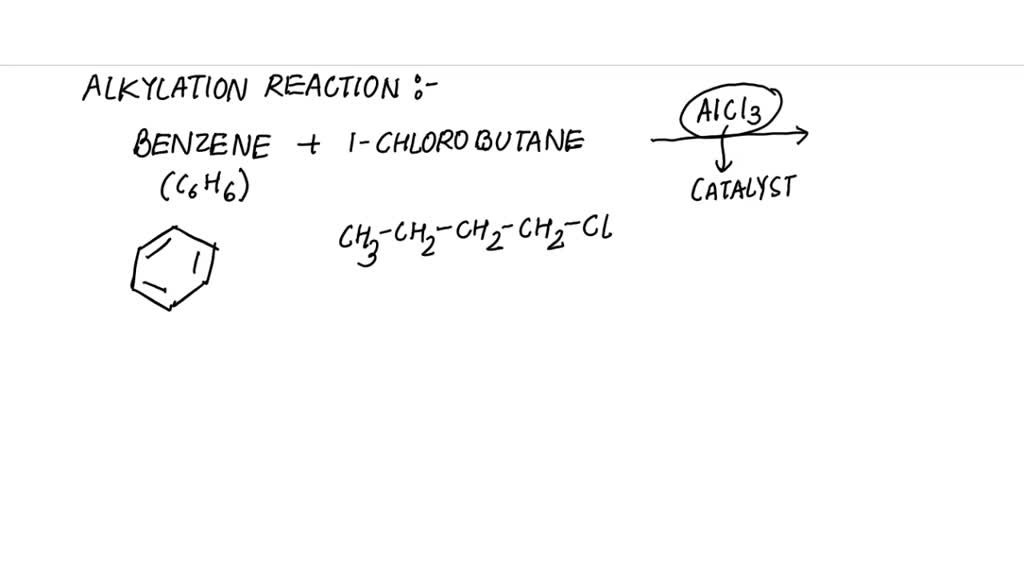 ALKYLATION REACTION :-
AlCl3
BENZENE + 1-CHLOROBUTANE
(C6H6)
CATALYST
CH3-CH2-CH2-CH2-Cl